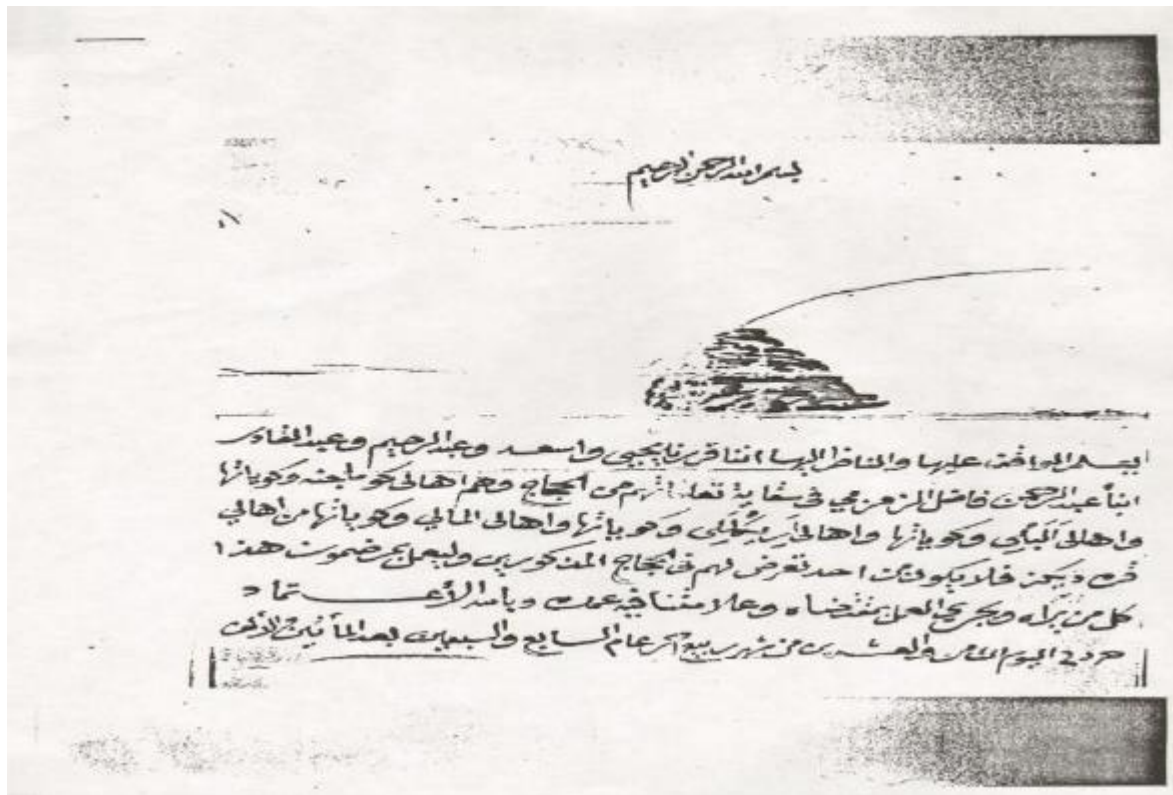 بسم الله الرحمن الرحيم
ليعلم الواقف عليها والناظر اليها اننا قررنا يحيى واسعد وعبدالرحيم وعبدالقادر
ابناء عبدالرحمن فاضل الزمزمي في سقاية الحجاج وهم اهالي وكوباتها
واهالي وكوباتها واهالي وكوباتها واهالي وكوباتها من اهالي
فلا يكون احد تعرض لهم في الحجاج المذكورين وليعمل بمضمون هذا
كل من يراه ويجري العمل بمقتضاه وعلامتنا فيه عمده وبالله الأعتماد
حرر في اليوم الثامن والعشرين من شهر ربيع آخر عام السابع والسبعين بعد المأتين والألف